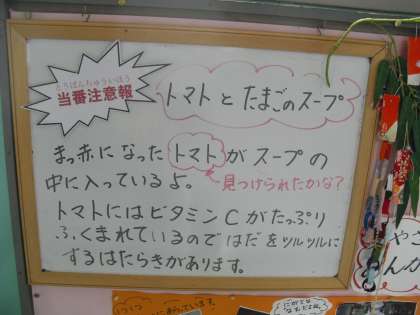 とうばんちゅういほう
当番注意報
トマトとたまごのスープ
まっ赤になったトマトがスープの
中に入っているよ。
見つけられたかな?
トマトにはビタミンCがたっぷり
ふくまれているのではだをツルツルに
するはたらきがあります。